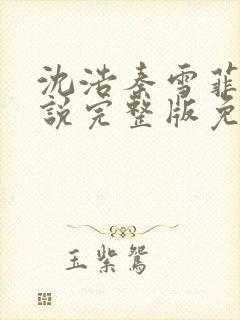 沈浩秦雪菲
說完整版免
玉紫鴛